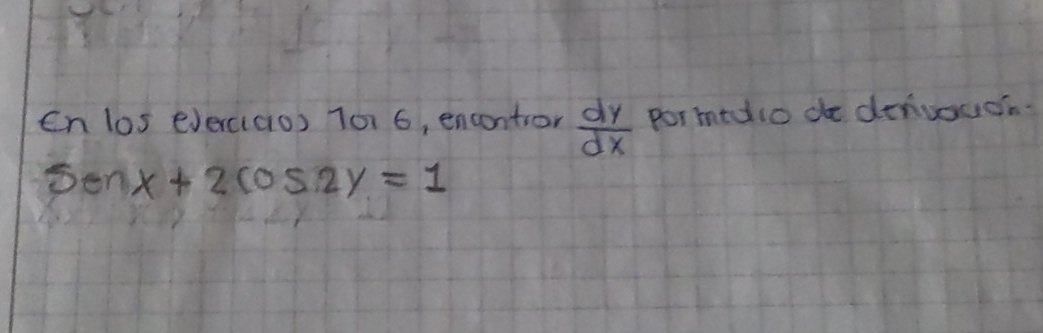 En los ejercicios 1 al 6, encontrar dy/dx por medio de derivación.
Senx + 2cos2y = 1